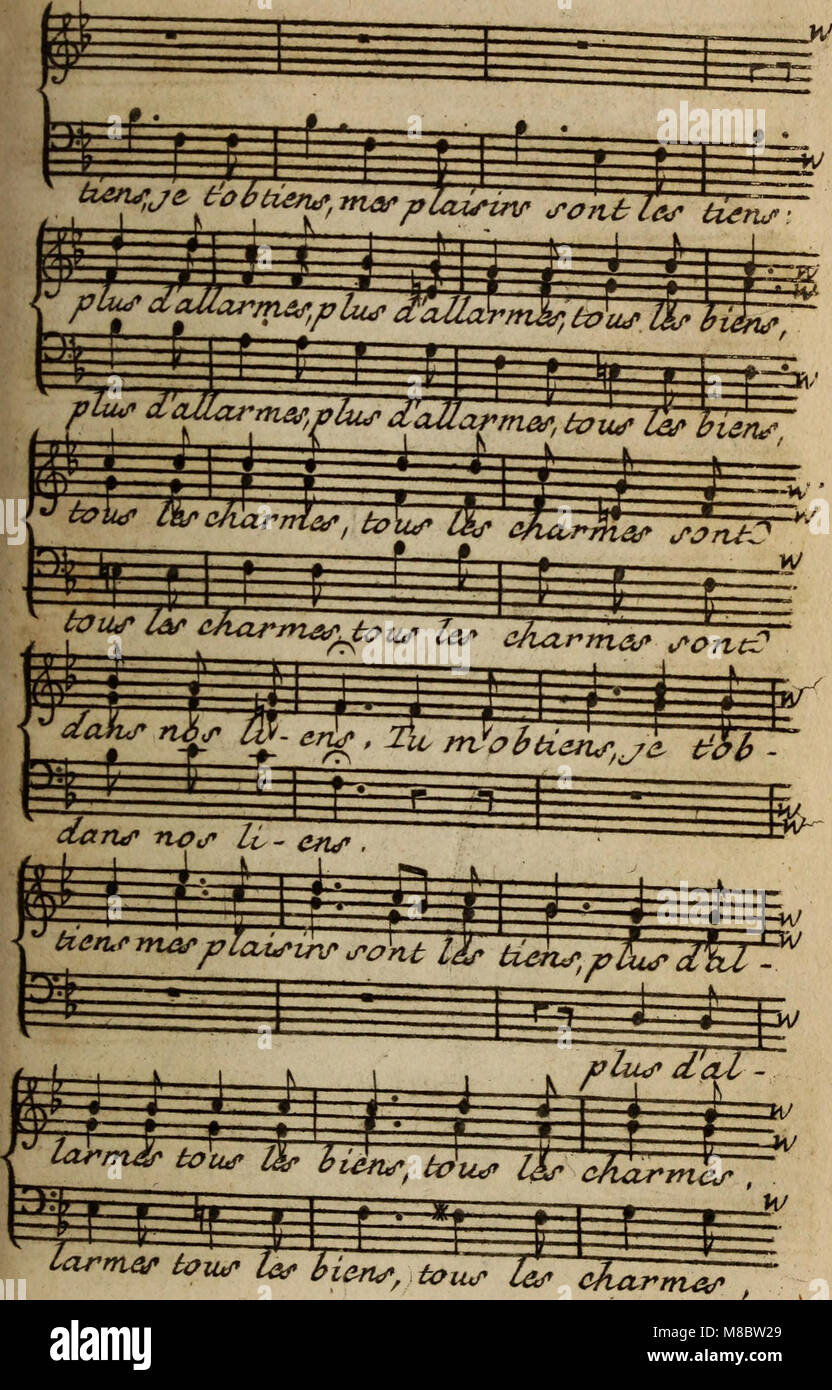 tiens, je t'obtiens, mes plaisirs sont les tiens:
plus d'allarmes, plus d'allarmes, tous les biens,
plus d'allarmes, plus d'allarmes, tous les biens,
tous les charmes, tous les charmes sont
tous les charmes, tous les charmes sont
dans nos li-ens. Tu m'obtiens, je t'ob-
dans nos li-ens.
tiens mes plaisirs sont les tiens, plus d'al-
plus d'al-
larmes tous les biens, tous les charmes,
larmes tous les biens, tous les charmes,
alamy
Image ID: M8BW29
www.alamy.com